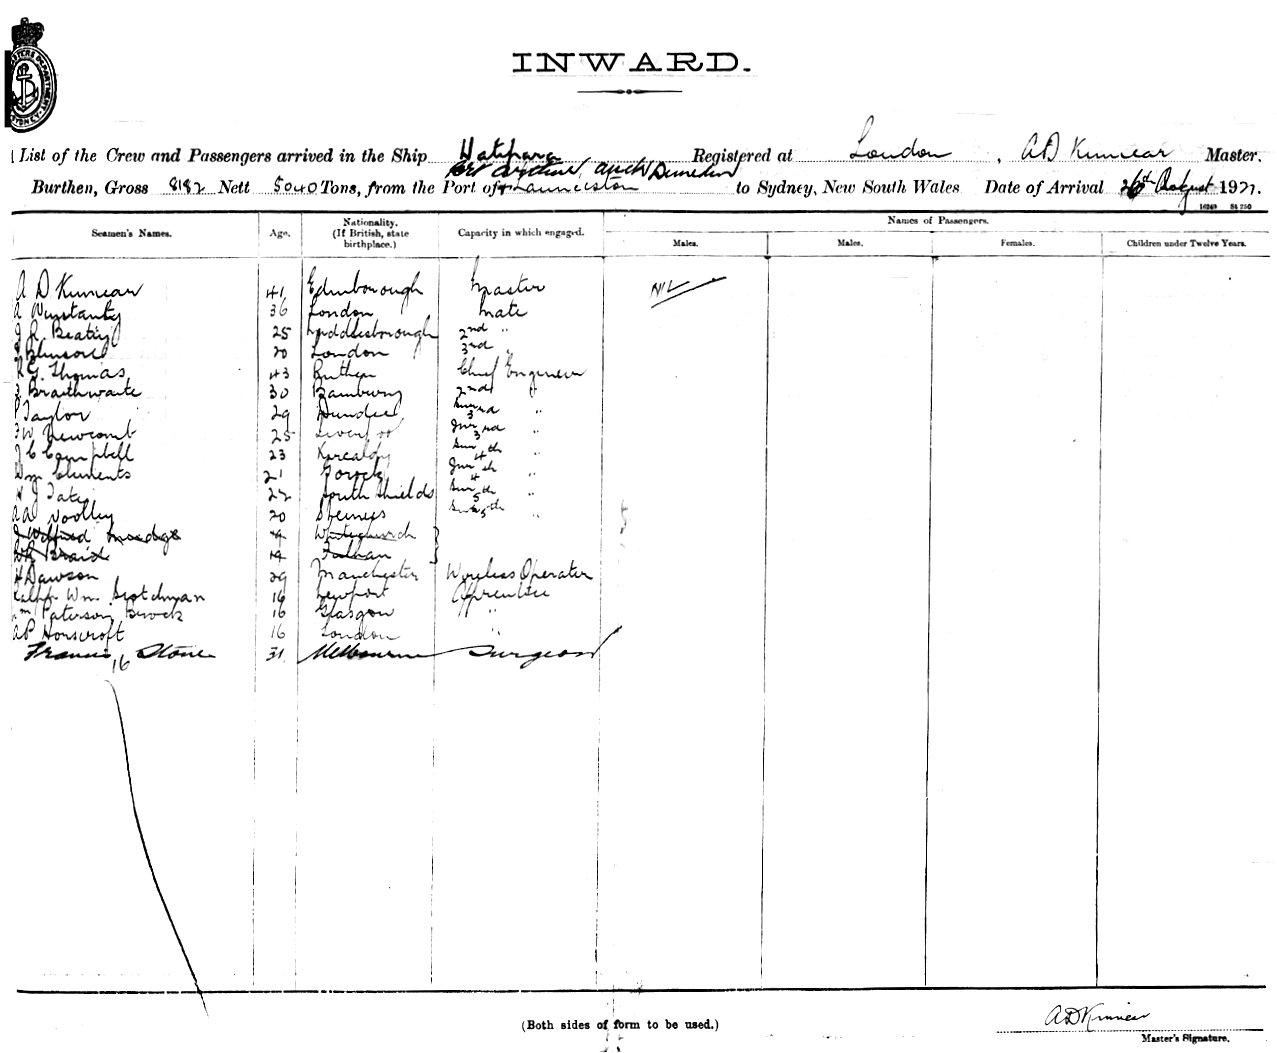 INWARD.
List of the Crew and Passengers arrived in the Ship Registered at London, A D Kinnear Master.
Burthen, Gross 8182 Nett 5040 Tons, from the Port of Launceston to Sydney, New South Wales Date of Arrival 26th August 192
16249 St 250
Seamen's Names. Age. Nationality. (If British, state birthplace.) Capacity in which engaged. Names of Passengers.
Males. Males. Females. Children under Twelve Years.
A D Kinnear 41 Edinborough Master NIL
A 36 London Mate
J R Beatty 25 Middlesborough 2nd "
20 London 3rd "
R G Thomas 43 Chief Engineer
Braithwaite 30 2nd "
Taylor 29 Dundee 3rd "
W Newcomb 25 Liverpool Jnr 3rd "
J C Campbell 23 4th "
Wm Clements 21 Jnr 4th "
H J Tate 22 South Shields 5th "
A A Woolley 20 5th "
19 Whitchurch
Braid 19
H Dawson 29 Manchester Wireless Operator
Ralph Wm Scotchman 16 Newport Apprentice
Wm Paterson Brock 16 Glasgow "
A P Horscroft 16 London "
Francis Stone 31 Melbourne Surgeon
16
(Both sides of form to be used.)
A D Kinnear
Master's Signature.